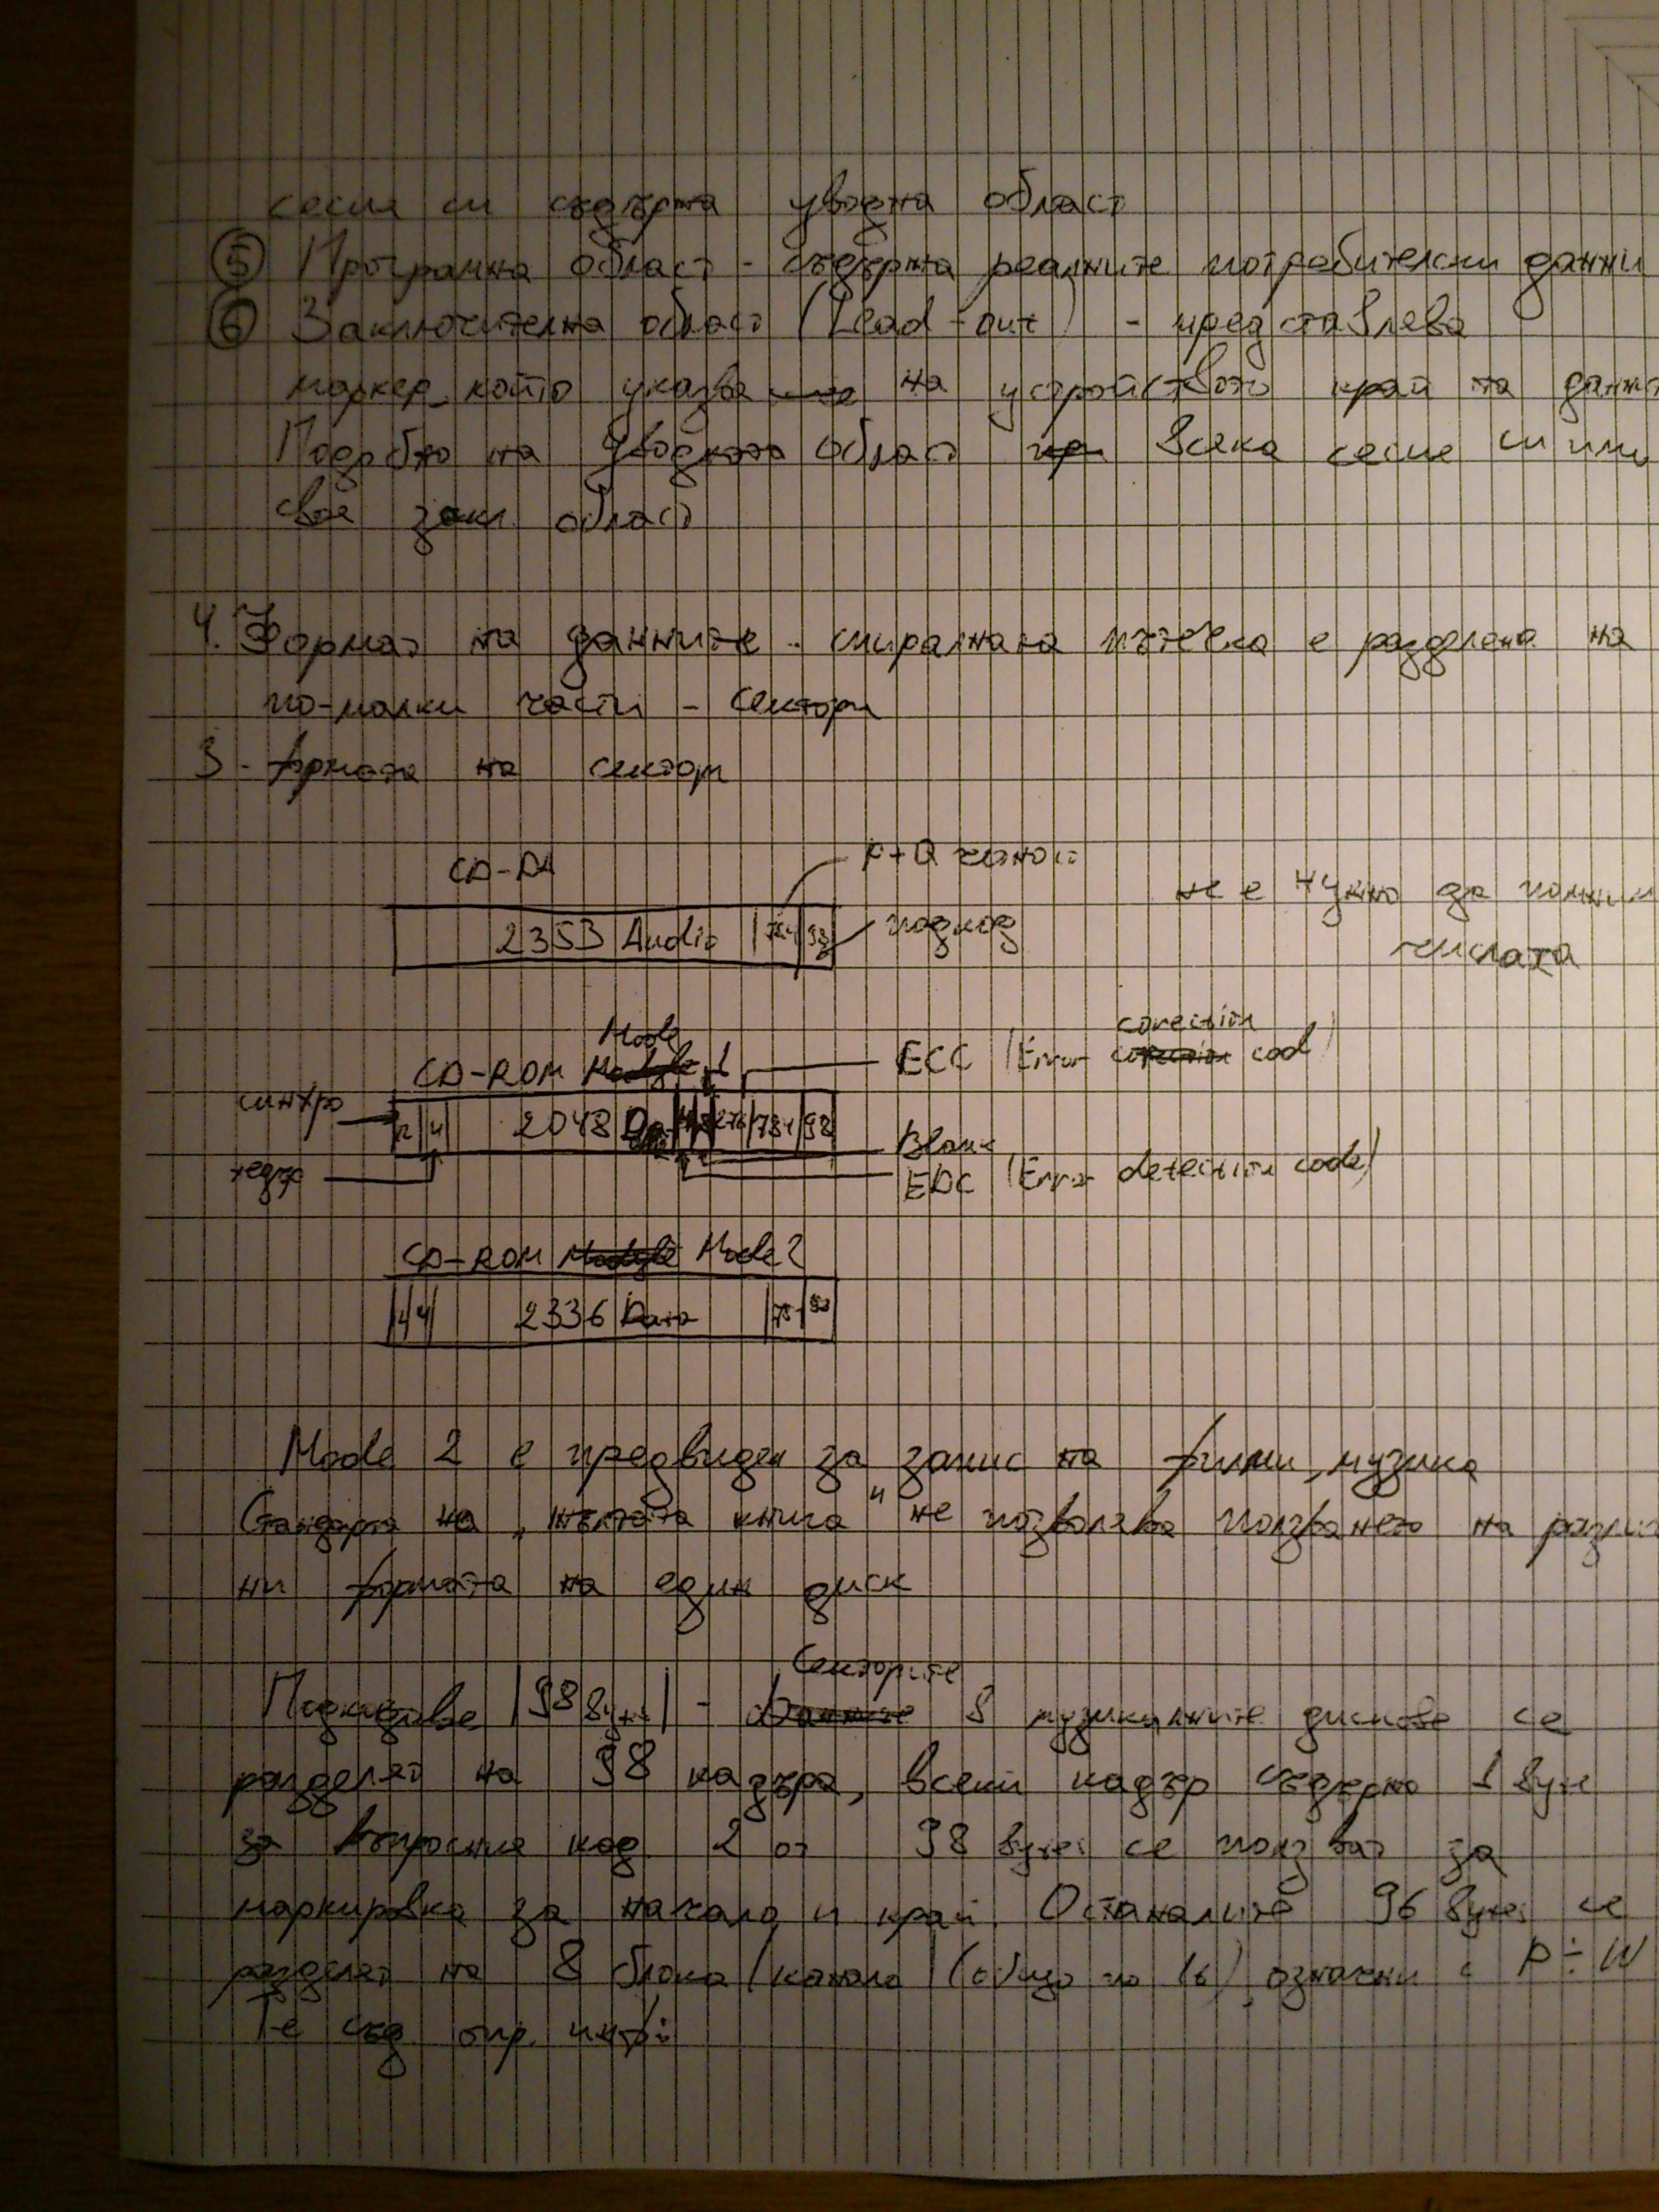 сесия си съдържа уводна област
⑤ Програмна област - съдържа реалните потребителски данни
⑥ Заключителна област (Lead-out) - представлева
маркер, който указва на устройството край на данн
Подобно на уводната област всяка сесия си им
своя закл. област
4. Формат на данните - спиралната пътечка е разделена на
по-малки части - сектори
3 формата на сектори
CD-DA
P+Q четност
2353 Audio 784 98
подкод
не е нужно да помним
числата
Mode
CD-ROM 1
corection
ECC (Error cod)
синхро
12 4 2048 276 784 98
Blank
хедър
EDC (Error detection code)
CD-ROM Mode 2
2336 Data
Mode 2 е предвиден за запис на филми, музика
Стандарта на „жълтата книга" не позволява ползването на разли
ни формата на един диск
Секторите
Подкодове (98 байта) - В музикалните дискове се
разделят на 98 кадъра, всеки кадър съдържа 1 байт
за код. 2 от 98 байта се ползват за
маркировка за начало и край. Останалите 96 байта се
разделят на 8 блока (канала) означени с P÷W
Те съд. опр. инф.